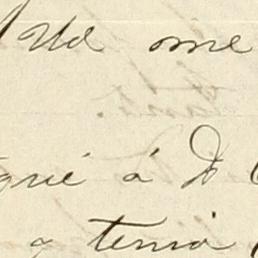 Ud me
gué á D
y tenia